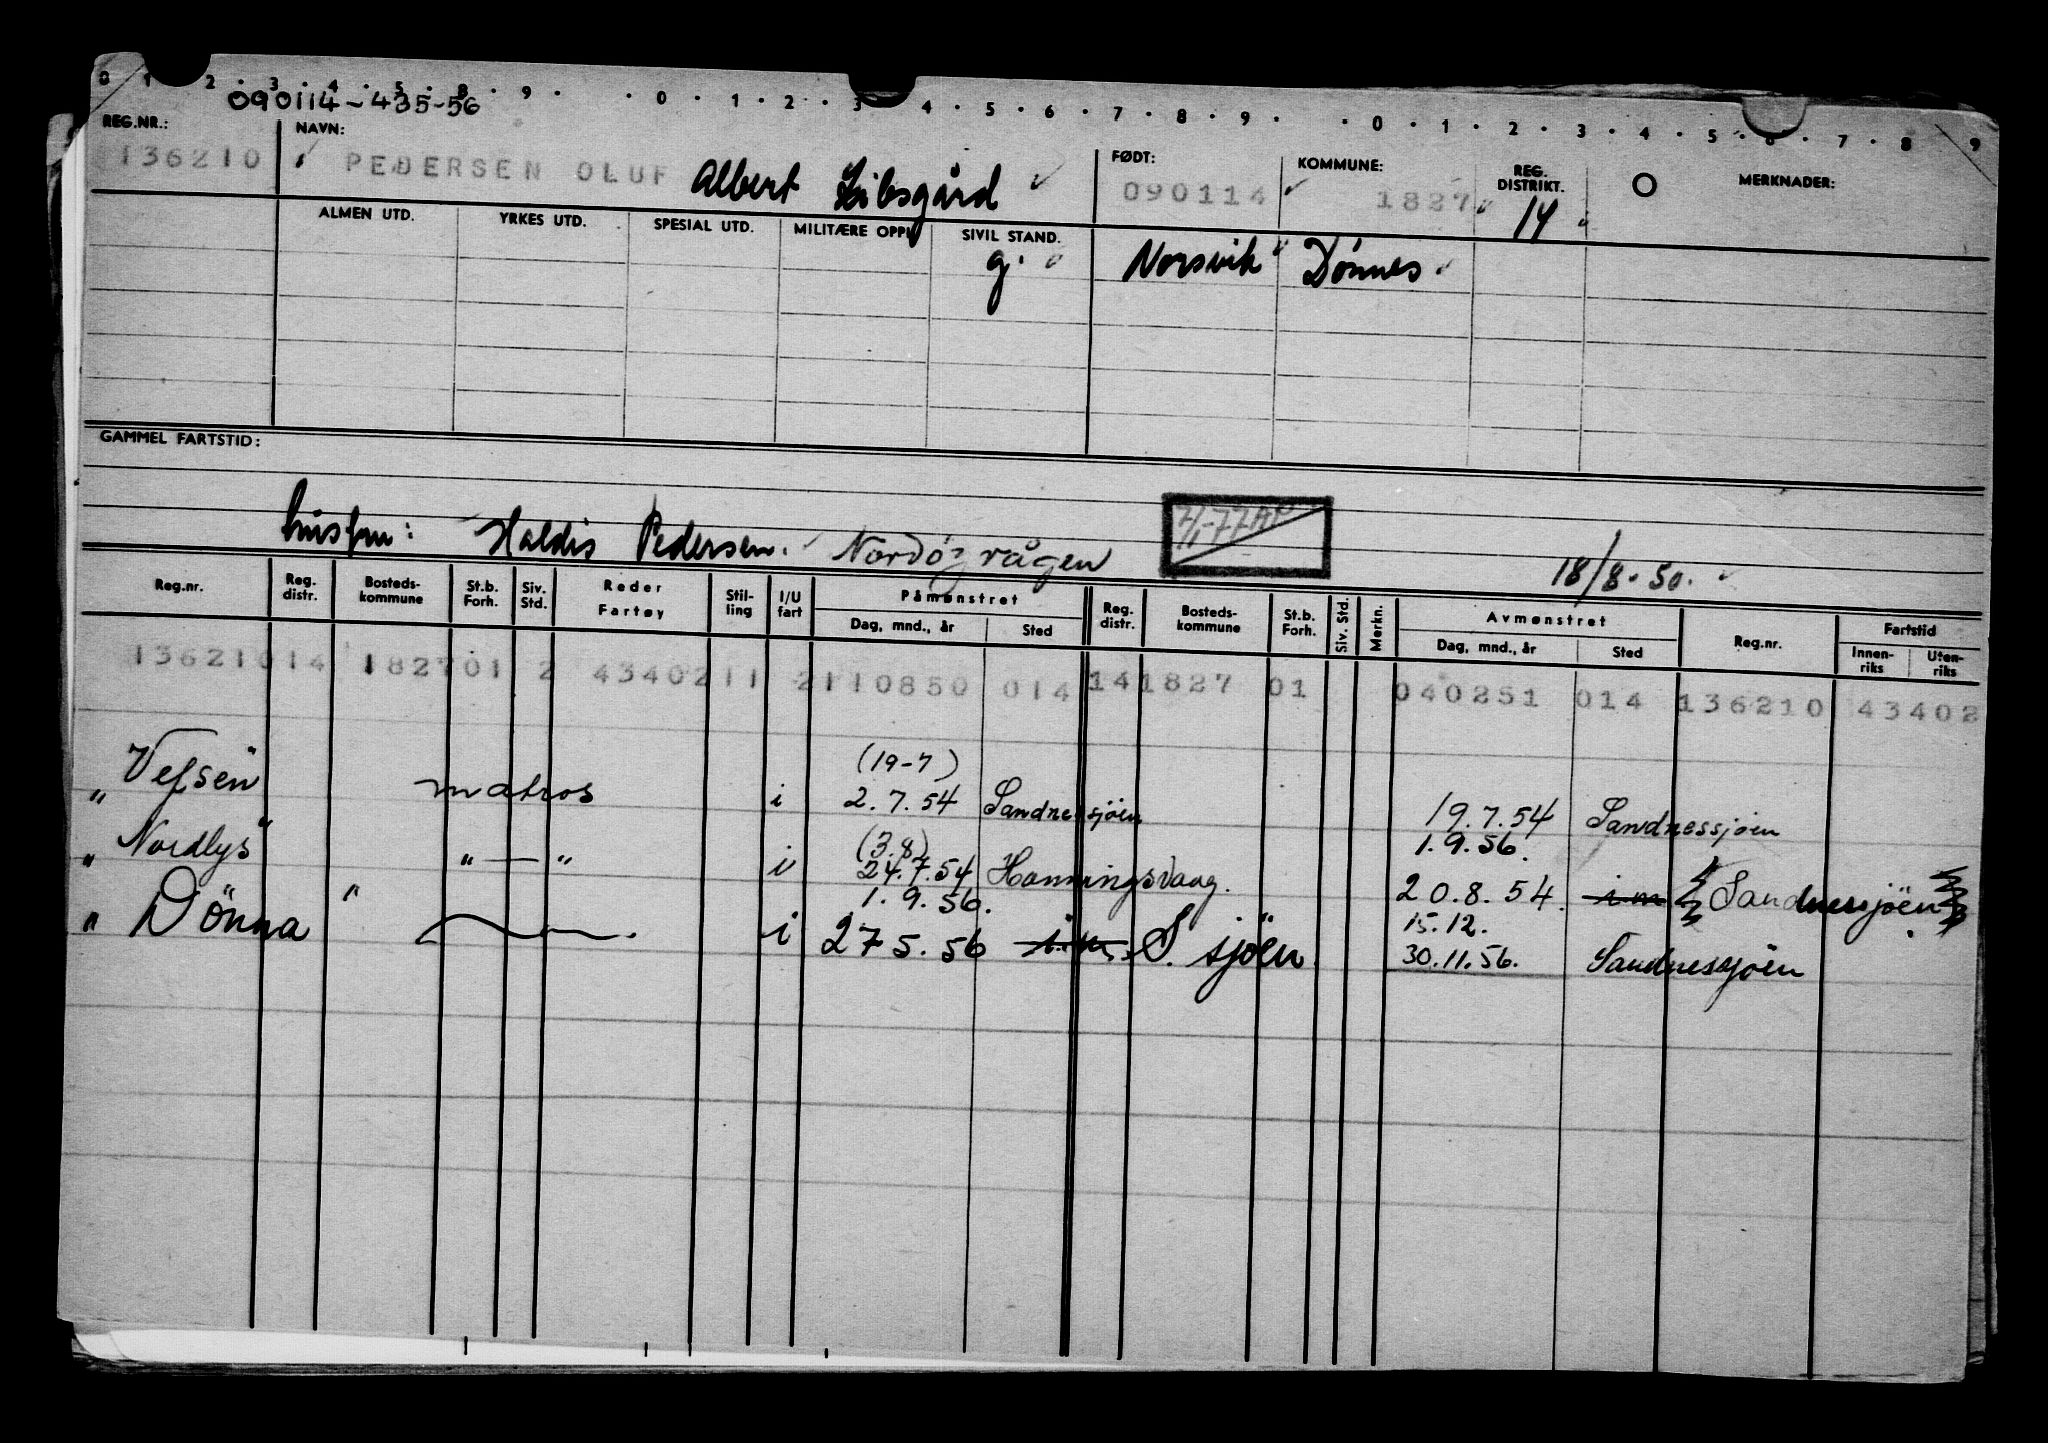 0 1 2 3 4 5 8 9 0 1 2 3 4 5 6 7 8 9 0 1 2 3 4 5 6 7 8 9
090114-435-56
REG.NR.: NAVN: FØDT: KOMMUNE: REG. DISTRIKT. MERKNADER:
136210 PEDERSEN OLUF Albert 090114 1827 14
ALMEN UTD. YRKES UTD. SPESIAL UTD. MILITÆRE OPPL. SIVIL STAND.
g. Norsvik Dönnes
GAMMEL FARTSTID:
hustru: Haldis Pedersen. Nordöyvågen 18/8.50.
Reg.nr. Reg. distr. Bosteds-kommune St.b. Forh. Siv. Std. Reder Fartøy Stil-ling I/U fart Påmønstret Dag, mnd., år Sted Reg. distr. Bosteds-kommune St.b. Forh. Siv. Std. Merkn. Avmønstret Dag, mnd., år Sted Reg.nr. Fartstid Innen-riks Uten-riks
136210 14 1827 01 2 4340211 2 110850 014 14 1827 01 040251 014 136210 43402
(19-7)
"Vefsen" matros i 2.7.54 Sandnessjöen 19.7.54 Sandnessjöen
(3.8) 1.9.56.
"Nordlys" "—" i 24.7.54 Honningsvaag. 20.8.54. i m Sandnessjöen
1.9.56. 15.12.
"Dönna" —"— i 27 5.56 i.m. S. sjöen 30.11.56. Sandnessjöen